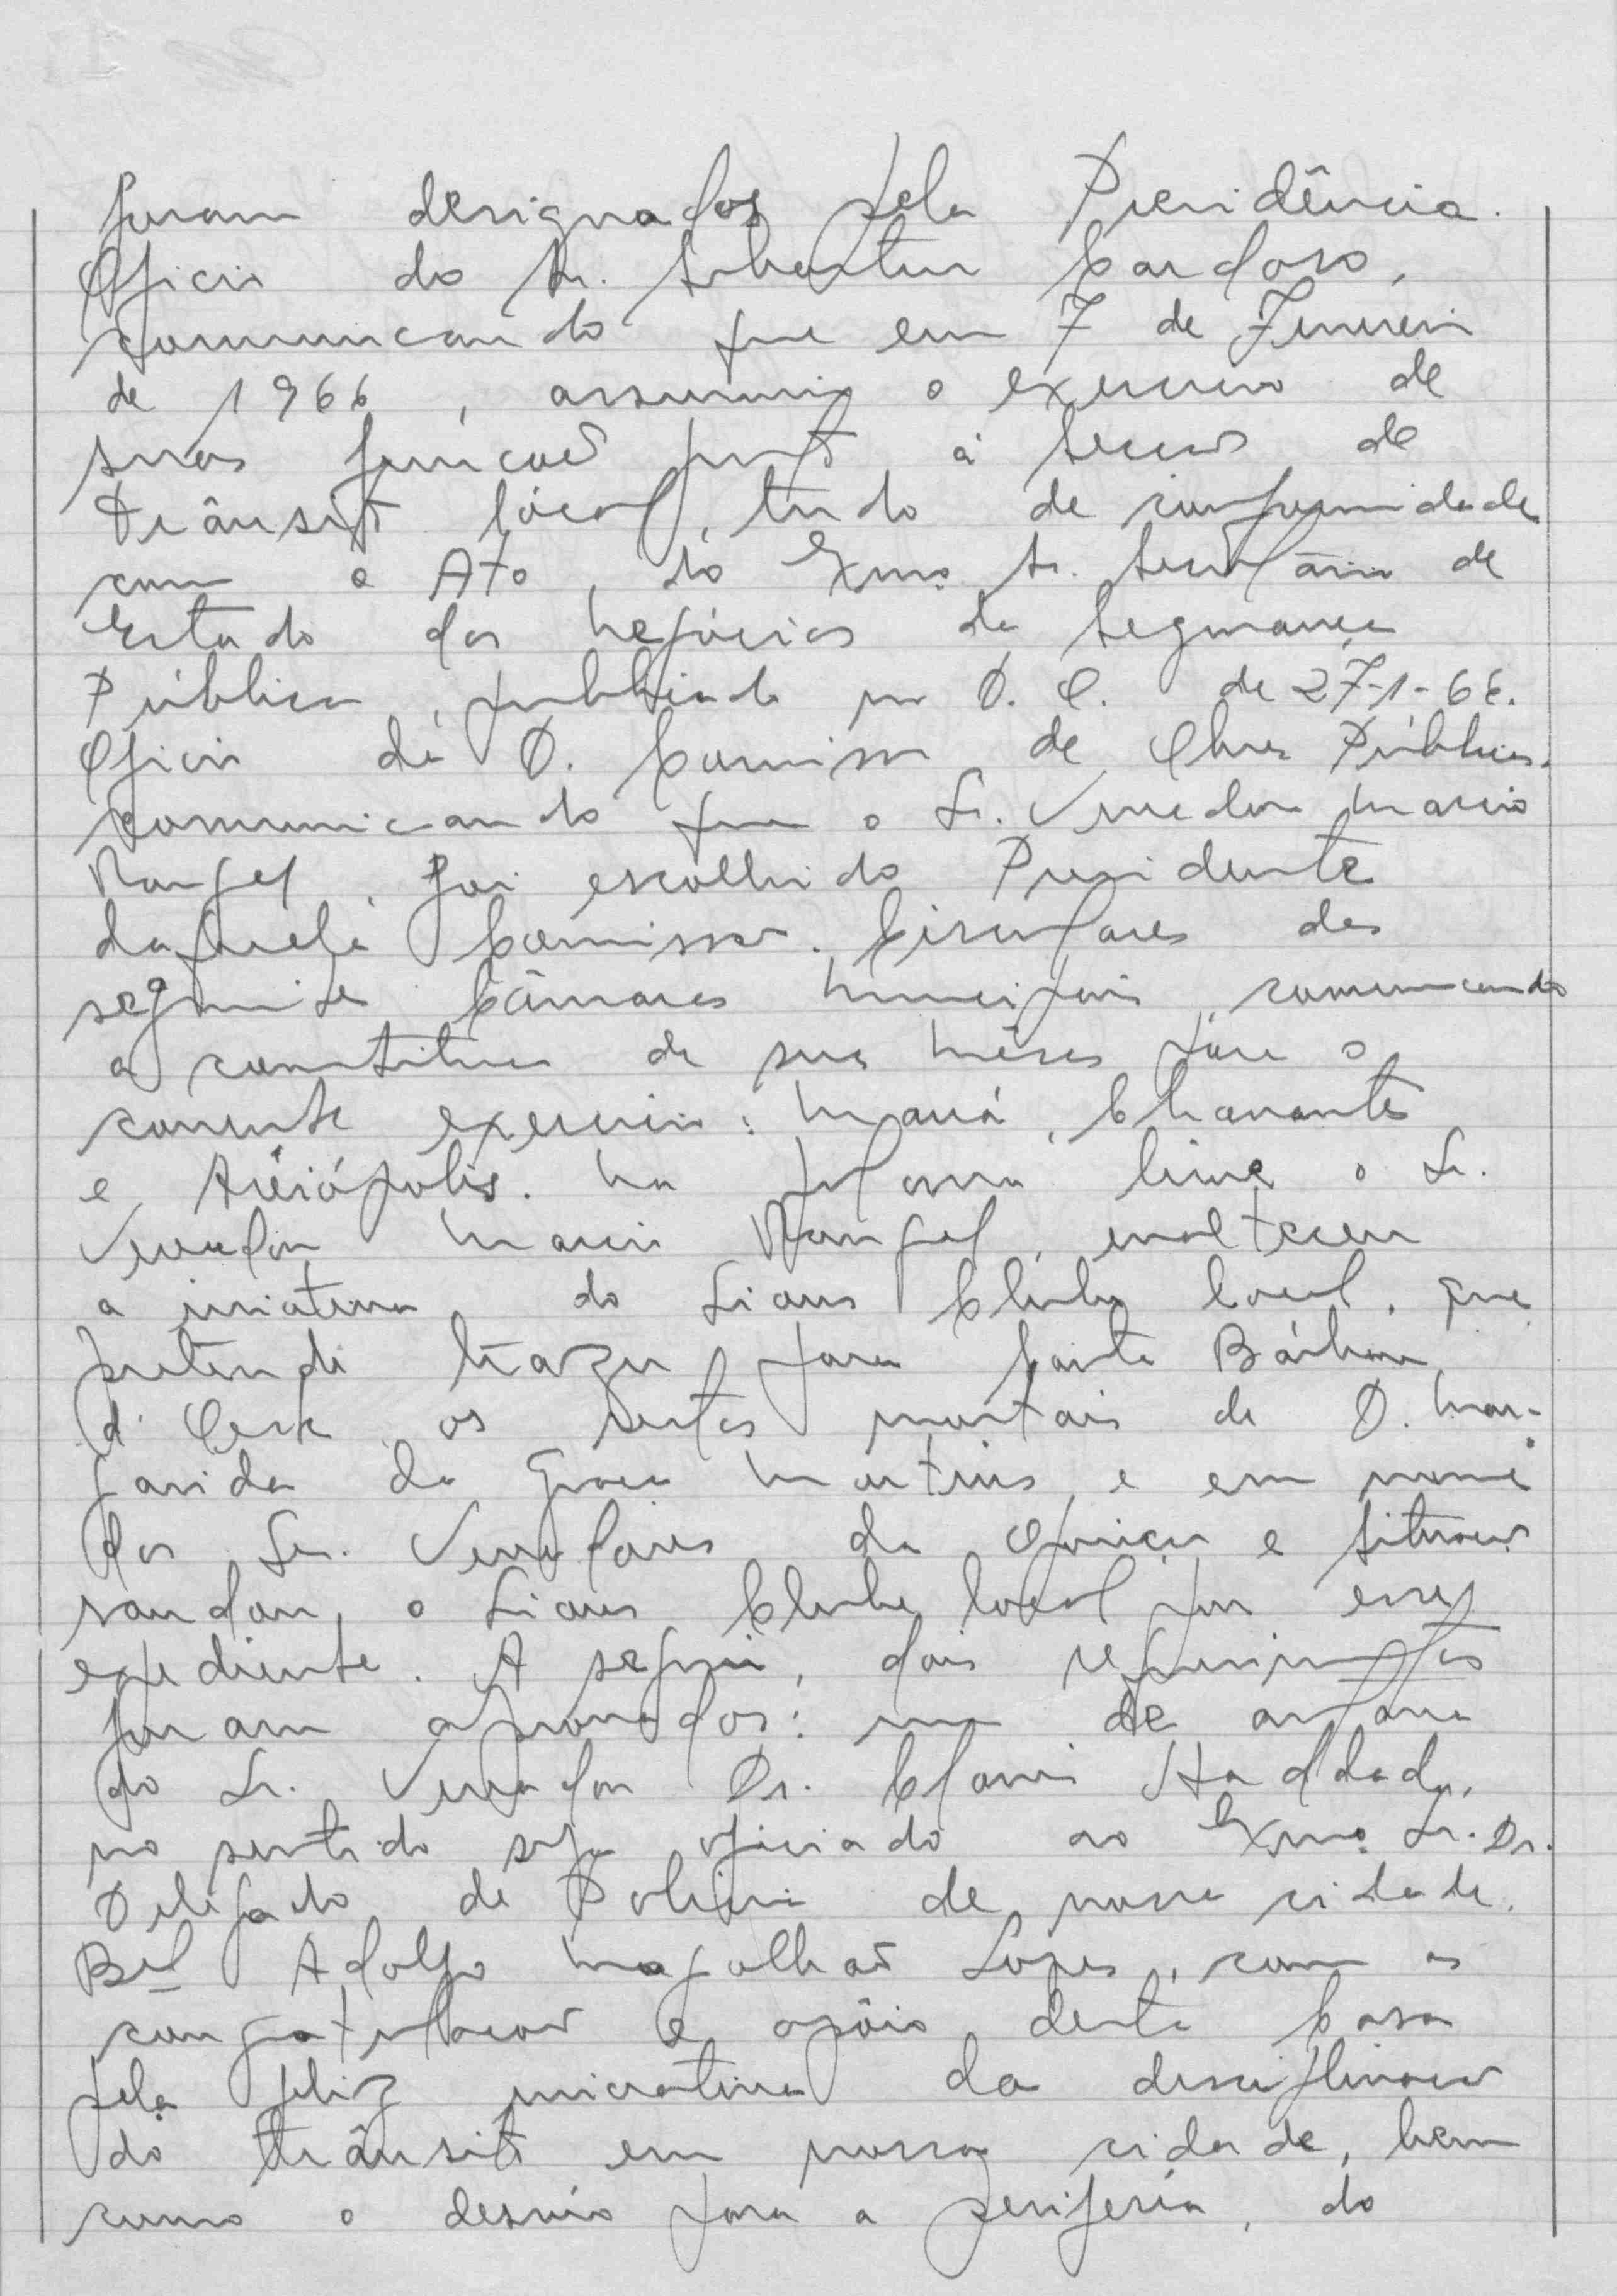 foram designados pela Presidência.
Oficio do Sr. Sebastião Cardoso,
comunicando que em 7 de Fevereiro
de 1966, assumiu o exercicio de
suas funções junto à Secção de
Trânsito local, tudo de conformidade
com o Ato, do Exmo. Sr. Secretário de
Estado dos Negócios da Segurança
Pública, publicado no D. O. de 27-1-66.
Oficio da D. Comissão de Obras Públicas.
comunicando que o Sr. Vereador Mario
Rangel, foi escolhido Presidente
daquela Comissão. Circulares das
seguintes Câmaras Municipais, comunicando
a constituição de suas Mêsas para o
corrente exercicio: Mauá, Chavantes
e Areiópolis. Na palavra livre o Sr.
Vereador Mario Rangel, enalteceu
a iniciativa do Lions Clube local, que
pretende trazer para Santa Bárbara
d'Oeste os restos mortais de D. Mar-
garida da Graça Martins, e em nome
dos Srs. Vereadores da oposição e situação
saudou o Lions Clube local por esse
expediente. A seguir, dois requerimentos
foram aprovados: um de autoria
do Sr. Vereador Dr. Clovis Haddad,
no sentido seja oficiado ao Exmo. Sr. Dr.
Delegado de Policia de nossa cidade.
Bel Adolfo Magalhães Lopes, com as
congratulações e apôio desta Casa
pela feliz iniciativa da disciplinação
do trânsito em nossa cidade, bem
como o desvio para a periferia, do